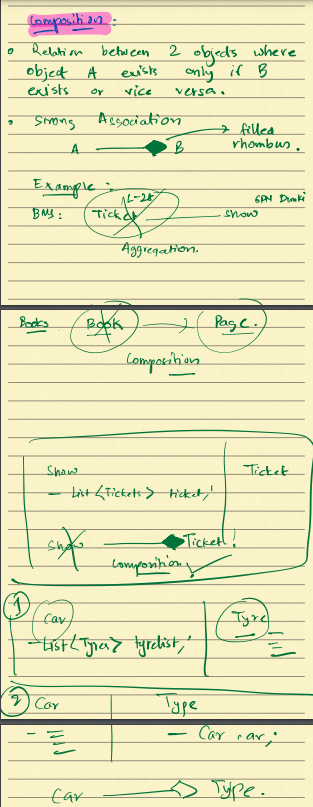 Composition :
Relation between 2 objects where
object A exists only if B
exists or vice versa.
Strong Association
filled
A B rhombus.
Example :
BMS : Ticket show
Aggregation.
Books Book Page.
Composition
Show Ticket
- List <Tickets> ticket;
Show Ticket!
Composition
1
Car Tyre
- List <Tyres> tyrelist;
2 Car Type
- - Car car;
Car Type.